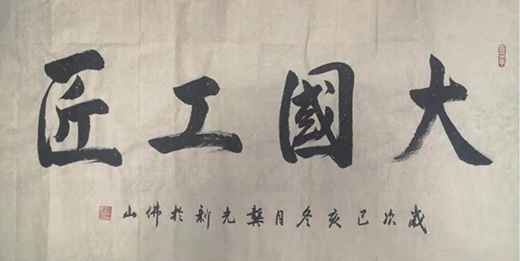 大國工匠
歲次己亥冬月龔光新於佛山